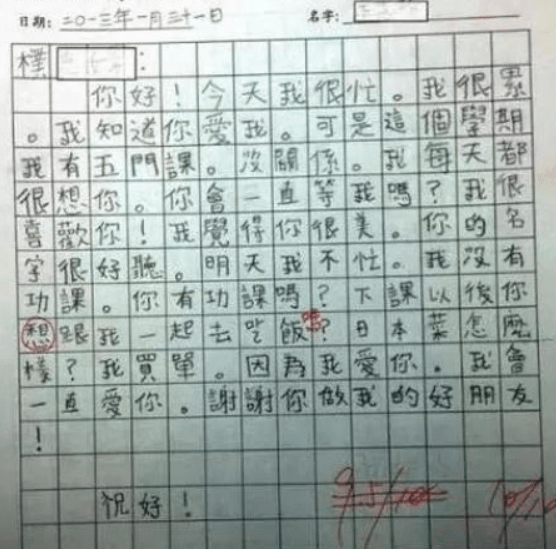 日期：二〇一三年一月三十一日 名字：
樸 ：
你好！今天我很忙。我很累
。我知道你愛我。可是這個學期
我有五門課。沒關係。我每天都
很想你。你會一直等我嗎？我很
喜歡你！我覺得你很美。你的名
字很好聽。明天我不忙。我沒有
功課。你有功課嗎？下課以後你
想跟我一起去吃飯嗎？日本菜怎麼
樣？我買單。因為我愛你。我會
一直愛你。謝謝你做我的好朋友
！
祝好！
9.5/10 10/10